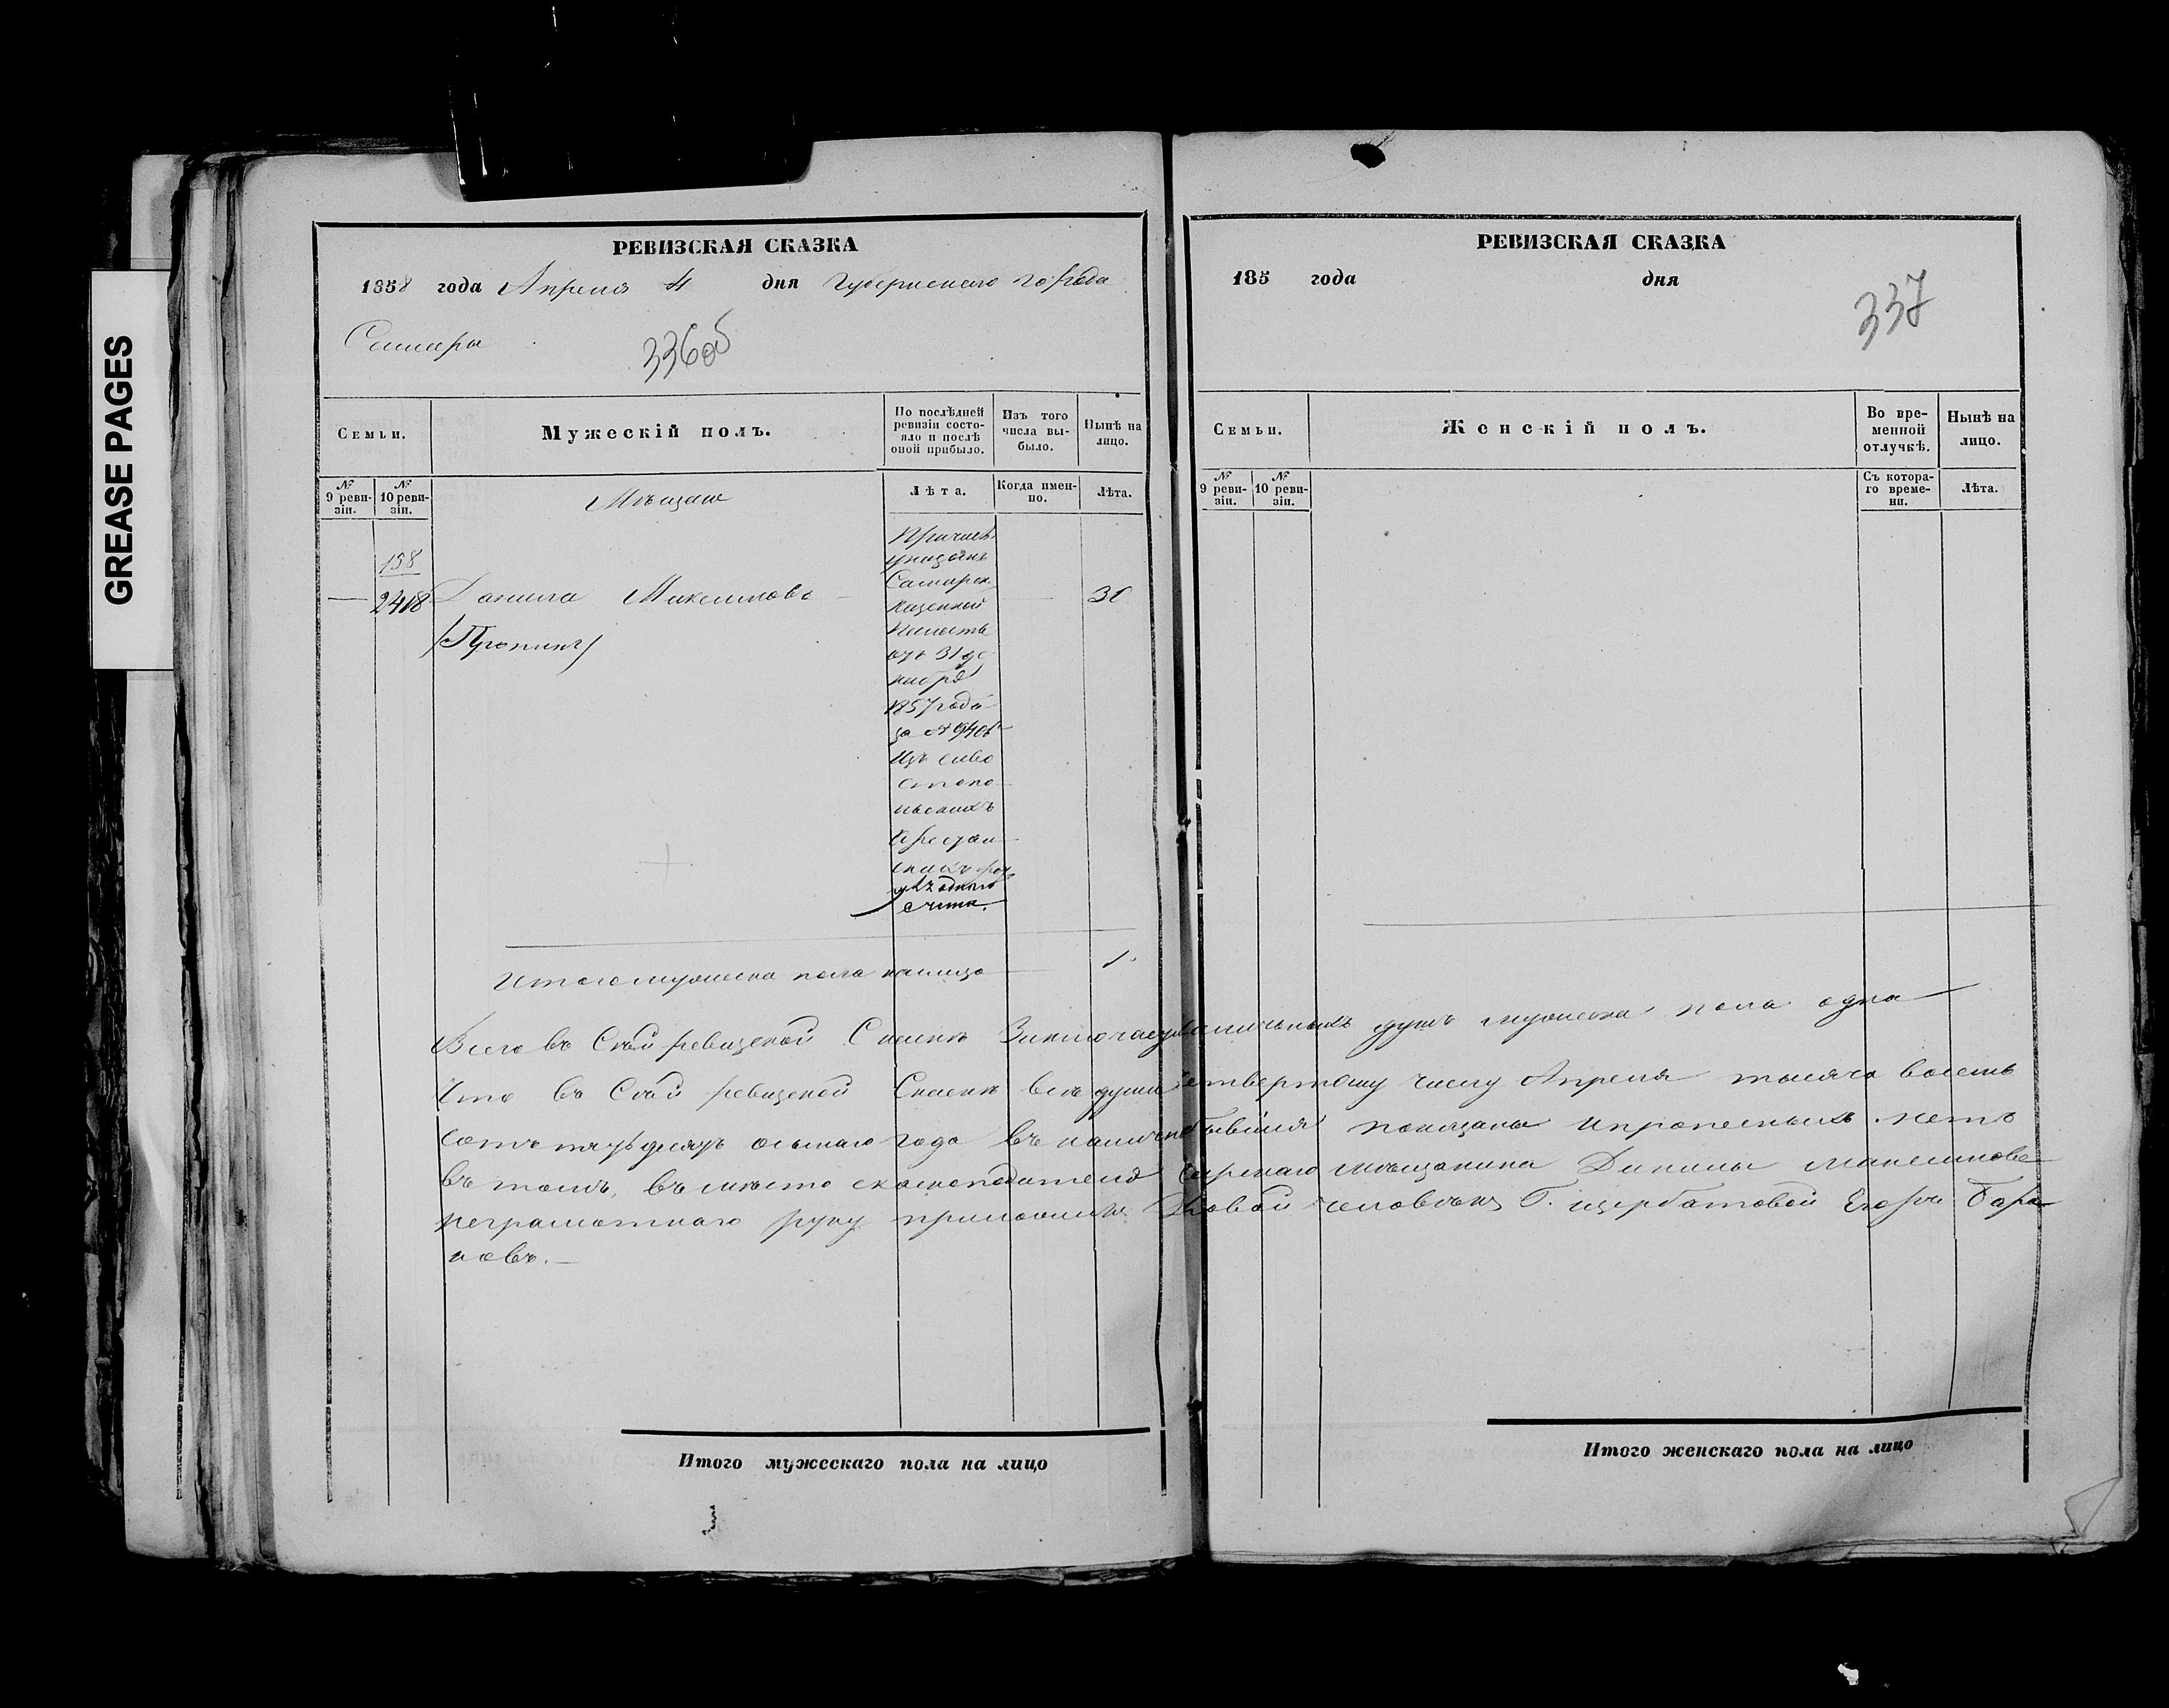 GREASE PAGES
РЕВИЗСКАЯ СКАЗКА
1858 года Апреля 4 дня Губернскаго города
Самары
336об
Семьи.
Мужескій полъ.
По послѣдней ревизіи состояло и послѣ оной прибыло.
Изъ того числа выбыло.
Нынѣ на лицо.
№ 9 ревизіи.
№ 10 ревизіи.
Мѣщане
Лѣта.
Когда именно.
Лѣта.
158
2418
Данила Максимовъ
/Пронинъ/
31
Причисл.
указомъ
Самарск.
казенной
Палаты
отъ 31 де
кабря
1857 года
за №
изъ
Крестьян
скихъ
счита.
Итого мужеска пола налицо
1.
Всего въ Сей ревизской Сказкѣ Заключается наличныхъ душъ мужеска пола одна
Что въ Сей ревизской Сказкѣ всѣ души четвертому числу Апреля тысяча восемь
сотъ пятьдесятъ осьмаго года въ наличн бывшія показаны и прописныхъ нетъ
въ томъ, въ мѣсто сказкоподателя Самарскаго мѣщанина Данилы Максимова
неграмотнаго руку приложилъ Дворовой человѣкъ Г. Щербатовой Егоръ Бара
новъ.
Итого мужескаго пола на лицо
РЕВИЗСКАЯ СКАЗКА
185 года дня
337
Семьи.
Женскій полъ.
Во временной отлучкѣ.
Нынѣ на лицо.
№ 9 ревизіи.
№ 10 ревизіи.
Съ котораго времени.
Лѣта.
Итого женскаго пола на лицо